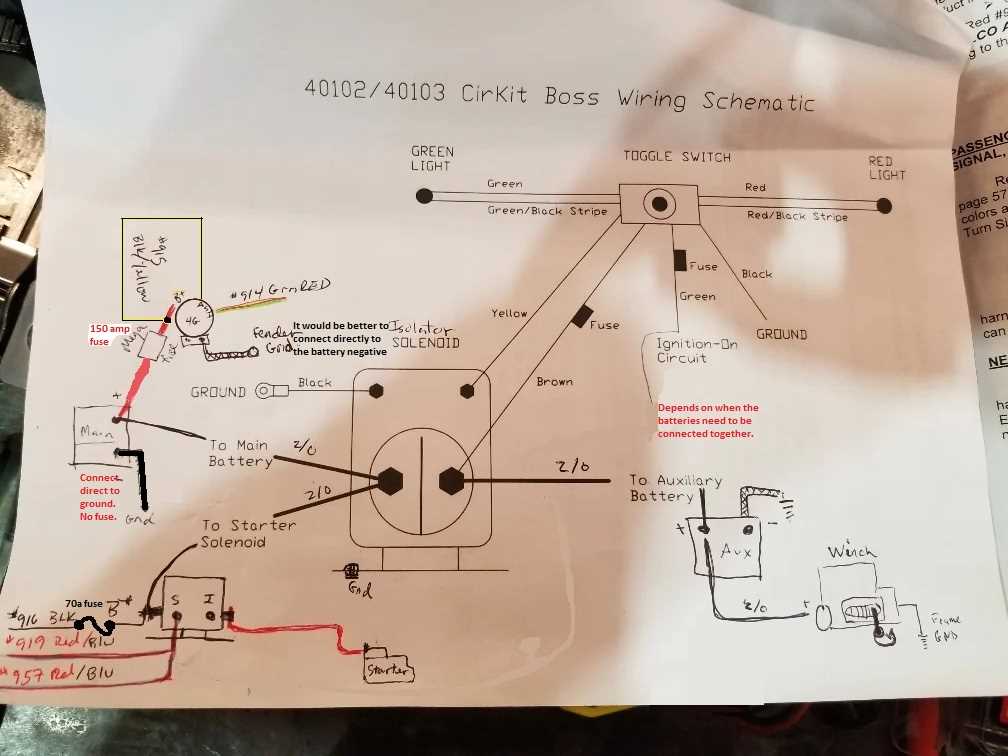 40102/40103 CirKit Boss Wiring Schematic
GREEN
LIGHT
TOGGLE SWITCH
RED
LIGHT
Green
Green/Black Stripe
Red
Red/Black Stripe
Fuse
Green
Black
GROUND
Ignition-On
Circuit
Yellow
Fuse
Brown
#915
Blk/Yellow
B+
4G
#914 Grn RED
150 amp
fuse
Mega
fuse
Fender
Grnd
It would be better to
connect directly to
the battery negative
Isolator
SOLENOID
GROUND
Black
Depends on when the
batteries need to be
connected together.
+
Main
-
Connect
direct to
ground.
No fuse.
Gnd
To Main
Battery
2/0
2/0
2/0
To Starter
Solenoid
To Auxiliary
Battery
+
-
Aux
Winch
2/0
+
Frame
GND
Gnd
70a fuse
B+
#916 BLK
#919 Red/Blu
#957 Red/Blu
S
I
Starter
Red #9
-CO A
g to th
PASSENG
SIGNAL.
Re
page 57
colors a
Turn Si
harn
can
NE
ha